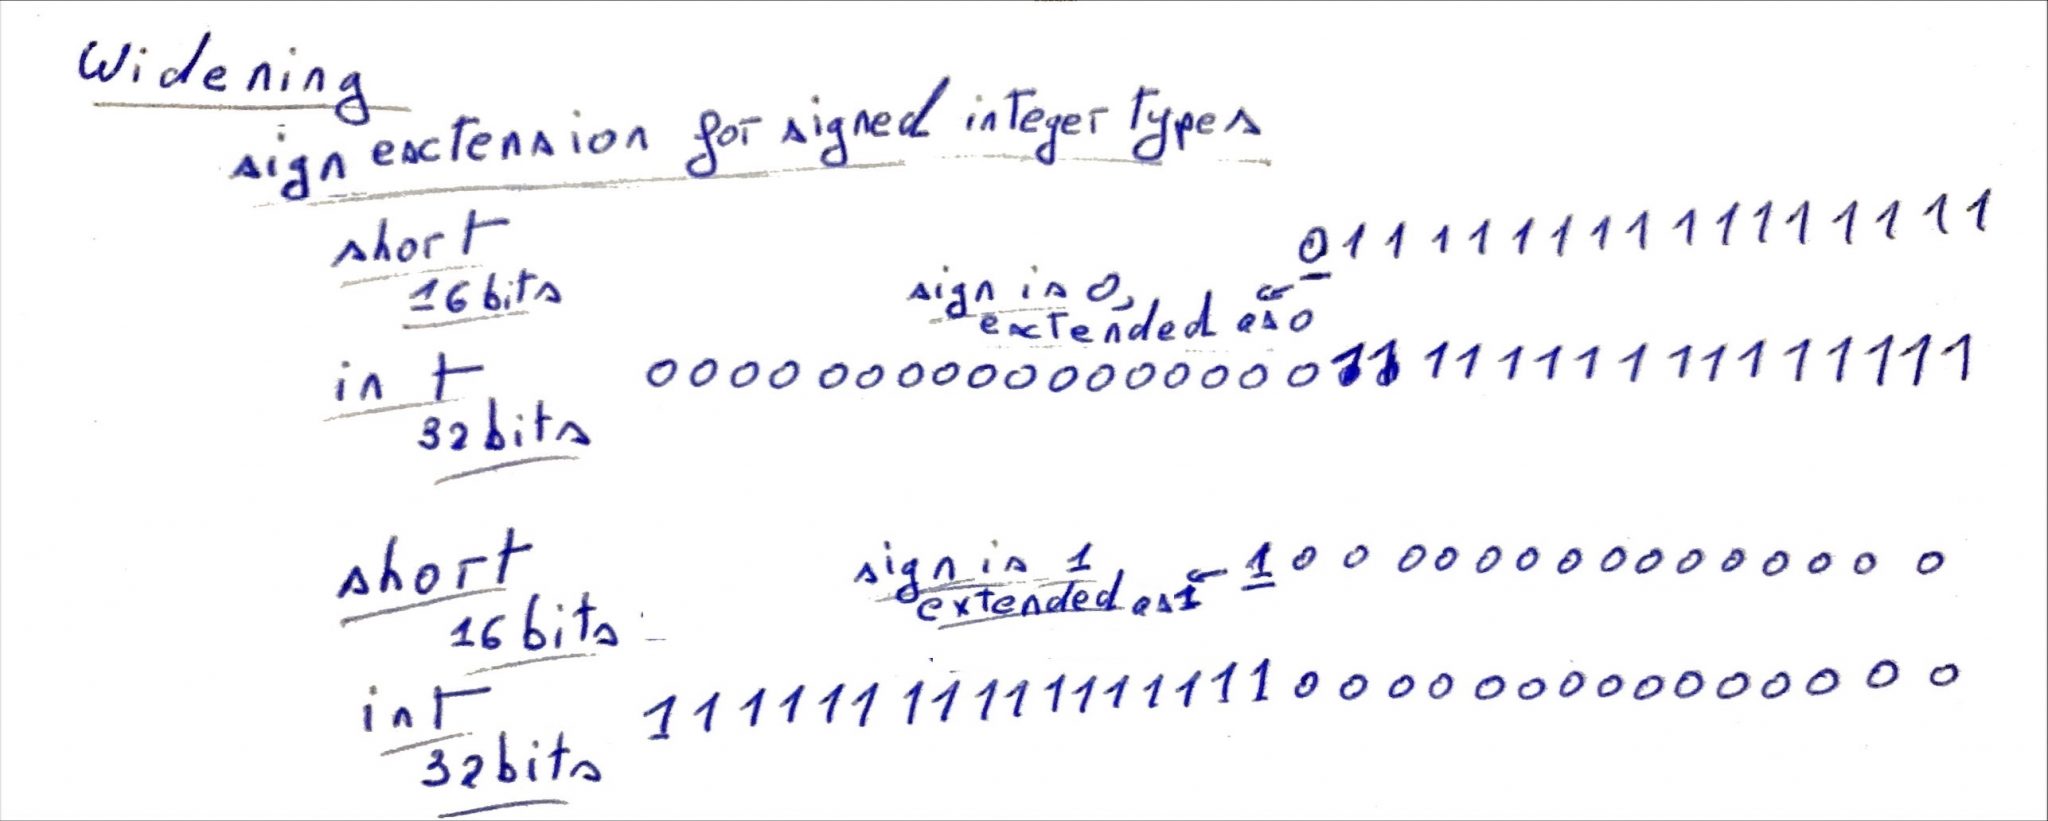 Widening
sign extension for signed integer types
short
0111111111111111
16 bits
sign is 0,
extended as 0
int
00000000000000000111111111111111
32 bits
short
sign is 1
1000000000000000
extended as 1
16 bits
int
11111111111111111000000000000000
32 bits